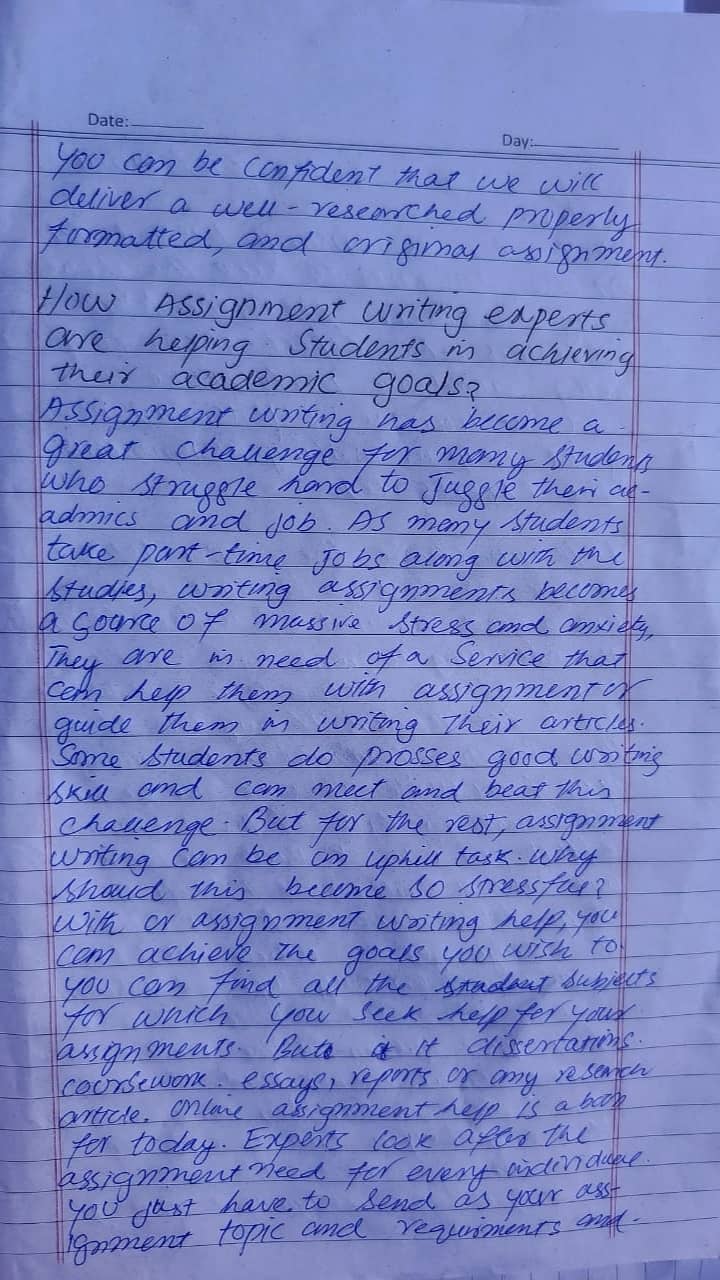 Date:
Day:
You can be confident that we will
deliver a well-researched properly
formatted, and original assignment.
How Assignment writing experts
are helping Students in achieving
their academic goals?
Assignment writing has become a
great challenge for many students
who struggle hard to Juggle their ac-
admics and job. As many students
take part-time Jobs along with the
studies, writing assignments becomes
a source of massive stress and anxiety,
They are in need of a Service that
can help them with assignment or
guide them in writing Their articles.
Some students do prosses good writing
skill and can meet and beat this
challenge. But for the rest, assignment
writing Can be an uphill task. Why
should this become so stressful?
With or assignment writing help, you
can achieve The goals you wish to
you can find all the subjects
for which you seek help for your
assignments. But it dissertations.
coursework. essays, reports or any research
article. Online assignment help is a boon
for today. Experts look after the
assignment need for every individual.
you just have to send as your ass-
ignment topic and requirments and.